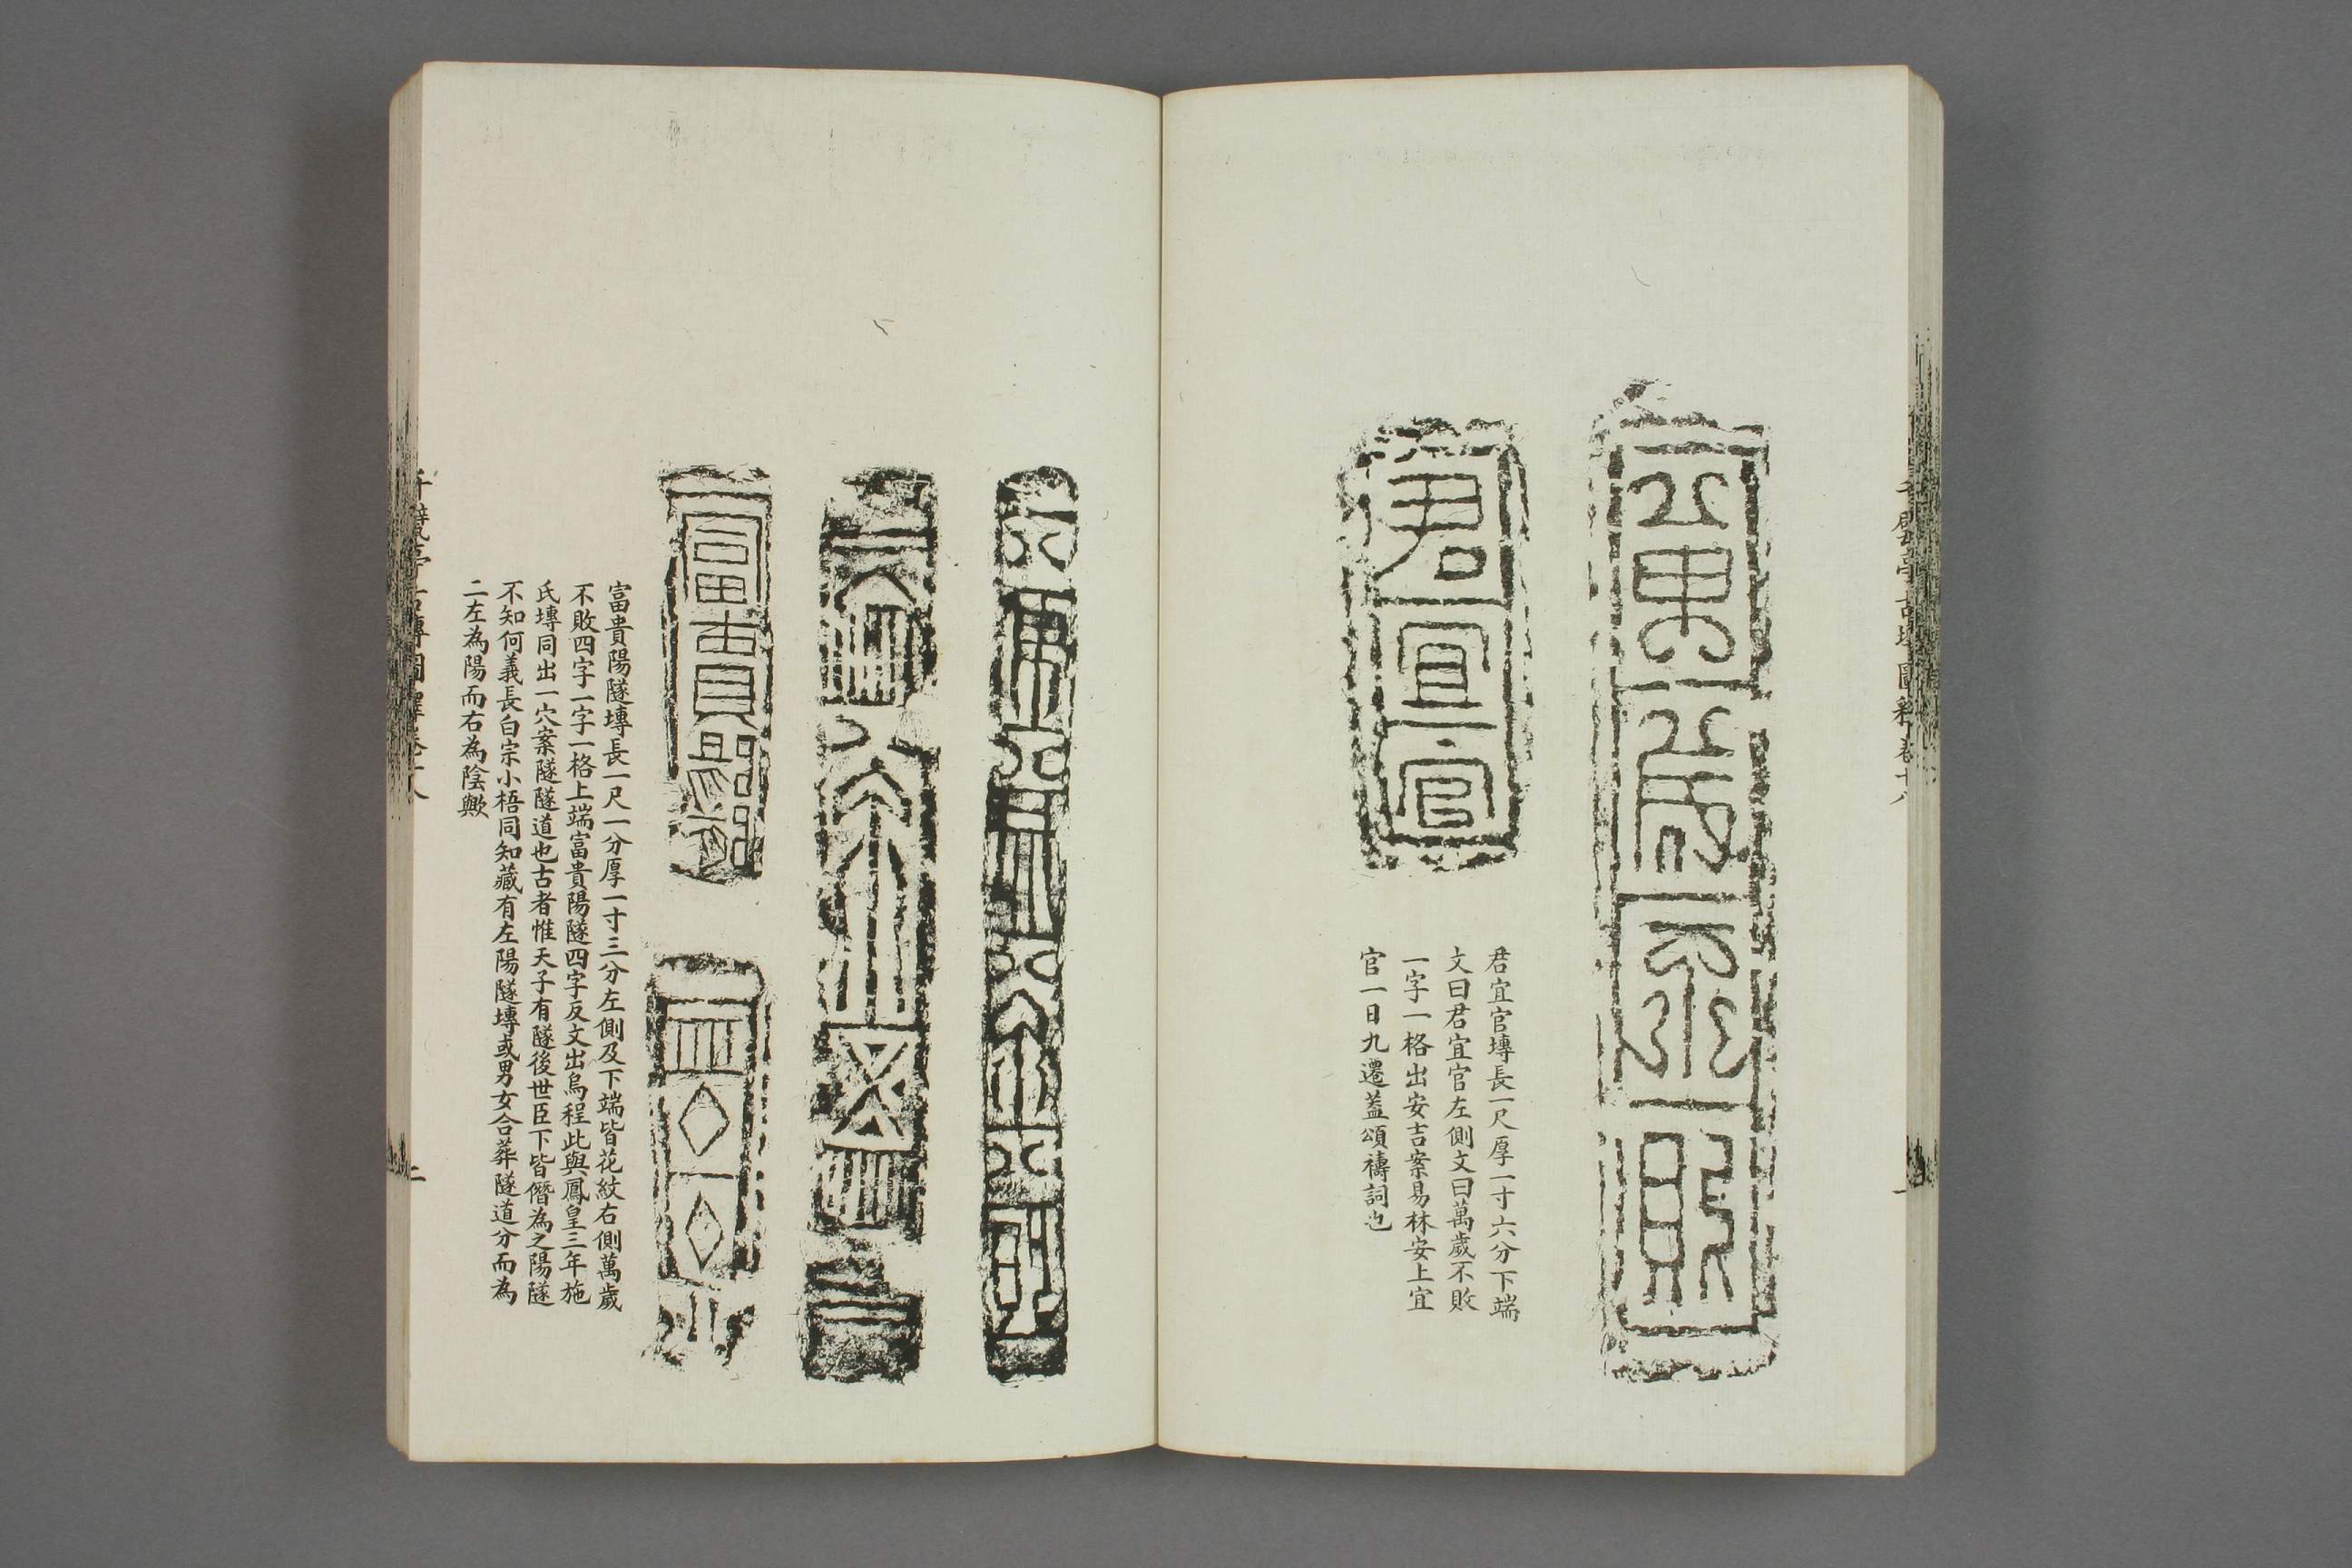 萬歲不敗
君宜官
君宜官塼長一尺厚一寸六分下端
文曰君宜官左側文曰萬歲不敗
一字一格出安吉案易林安上宜
官一日九遷蓋頌禱詞也
萬歲不敗
富貴陽隧
富貴陽隧塼長一尺一分厚一寸三分左側及下端皆花紋右側萬歲
不敗四字一字一格上端富貴陽隧四字反文出烏程此與鳳皇三年施
氏塼同出一穴案隧隧道也古者惟天子有隧後世臣下皆僭為之陽隧
不知何義長白宗小梧同知藏有左陽隧塼或男女合葬隧道分而為
二左為陽而右為陰歟